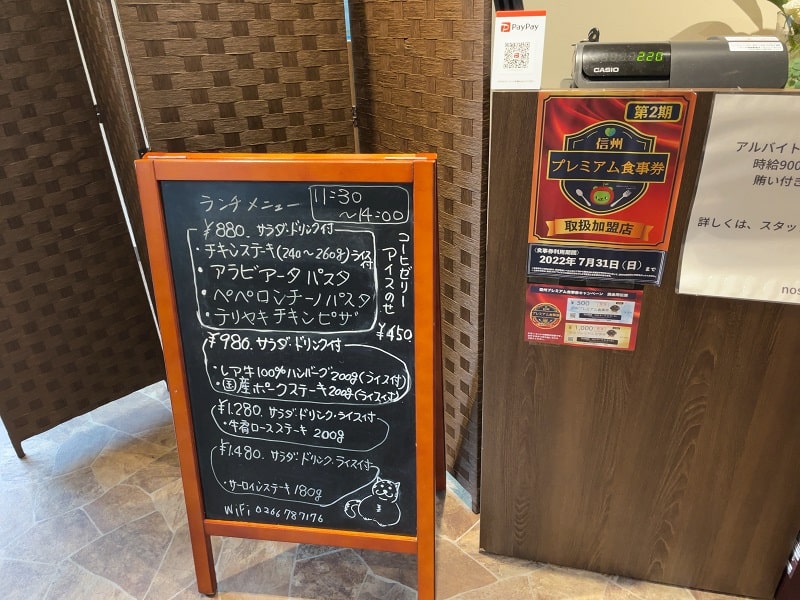 ランチメニュー
11:30
～14:00
¥880. サラダ・ドリンク付
・チキンステーキ(240～260g)ライス付
・アラビアータ パスタ
・ペペロンチーノ パスタ
・テリヤキ チキン ピザ
コーヒーゼリー
アイスのせ
¥450
¥980. サラダ・ドリンク付
・レア牛100%ハンバーグ200g(ライス付)
・国産ポークステーキ200g(ライス付)
¥1.280. サラダ・ドリンク・ライス付
・牛肩ロースステーキ 200g
¥1.480. サラダ・ドリンク・ライス付
・サーロインステーキ 180g
WiFi 0266787176
PayPay
CASIO
220
第2期
信州
プレミアム食事券
取扱加盟店
〈食事券利用期間〉
2022年 7月31日(日) まで
¥500
¥1,000
アルバイト
時給900
賄い付き
詳しくは、スタッ
nos